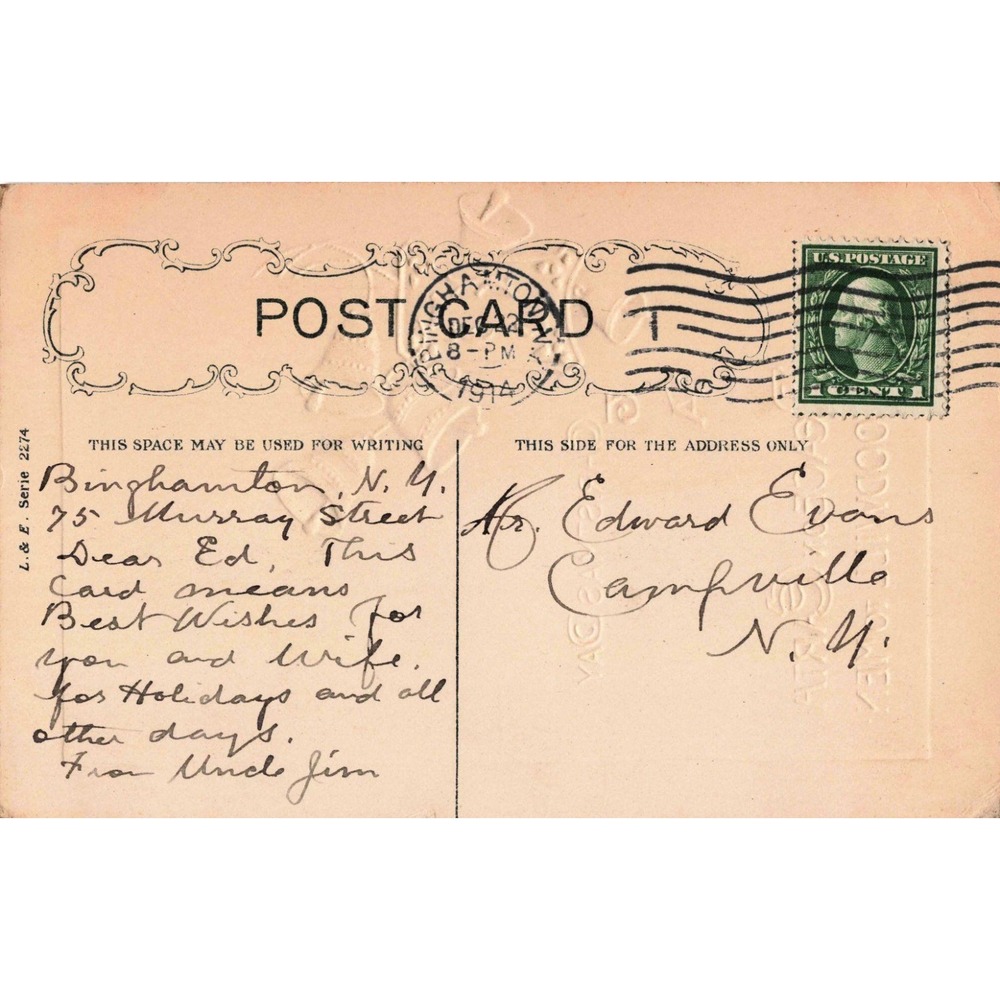 POST CARD
BINGHAMTON, N.Y.
DEC 
8-PM
1914
1
U.S. POSTAGE
1 CENT 1
THIS SPACE MAY BE USED FOR WRITING
THIS SIDE FOR THE ADDRESS ONLY
L. & E. Serie 2274
Binghamton, N.Y.
75 Murray Street
Dear Ed, This
Card means
Best Wishes for
you and Wife.
for Holidays and all
other days.
From Uncle Jim
Mr. Edward Evans
Campville
N.Y.